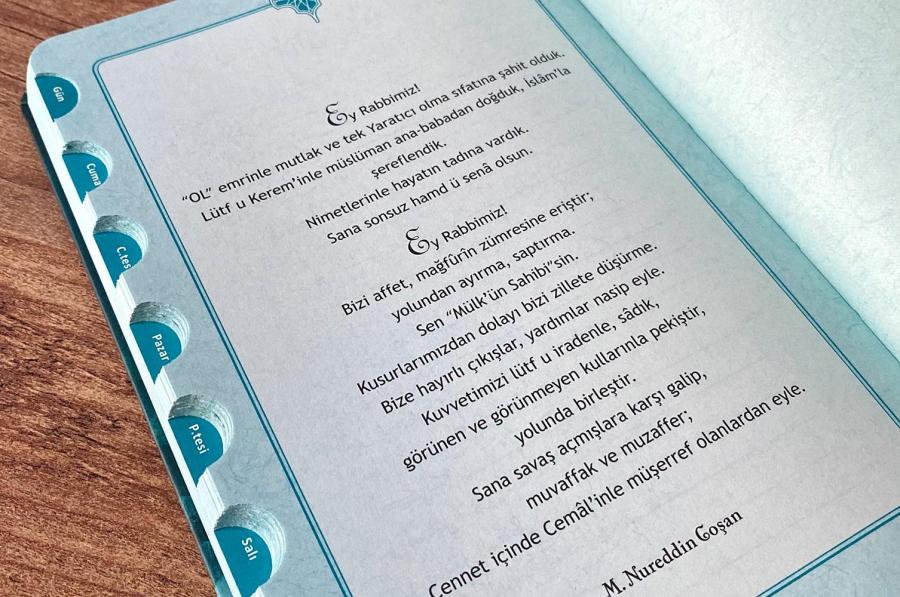 Gün
Cuma
C.tes
Pazar
P.tesi
Salı
Ey Rabbimiz!
"OL" emrinle mutlak ve tek Yaratıcı olma sıfatına şahit olduk.
Lütf u Kerem'inle müslüman ana-babadan doğduk, İslâm'la
şereflendik.
Nimetlerinle hayatın tadına vardık.
Sana sonsuz hamd ü senâ olsun.
Ey Rabbimiz!
Bizi affet, mağfûrîn zümresine eriştir;
yolundan ayırma, saptırma.
Sen "Mülk'ün Sahibi"sin.
Kusurlarımızdan dolayı bizi zillete düşürme.
Bize hayırlı çıkışlar, yardımlar nasip eyle.
Kuvvetimizi lütf u iradenle, sâdık,
görünen ve görünmeyen kullarınla pekiştir,
yolunda birleştir.
Sana savaş açmışlara karşı galip,
muvaffak ve muzaffer;
Cennet içinde Cemâl'inle müşerref olanlardan eyle.
M. Nureddin Coşan